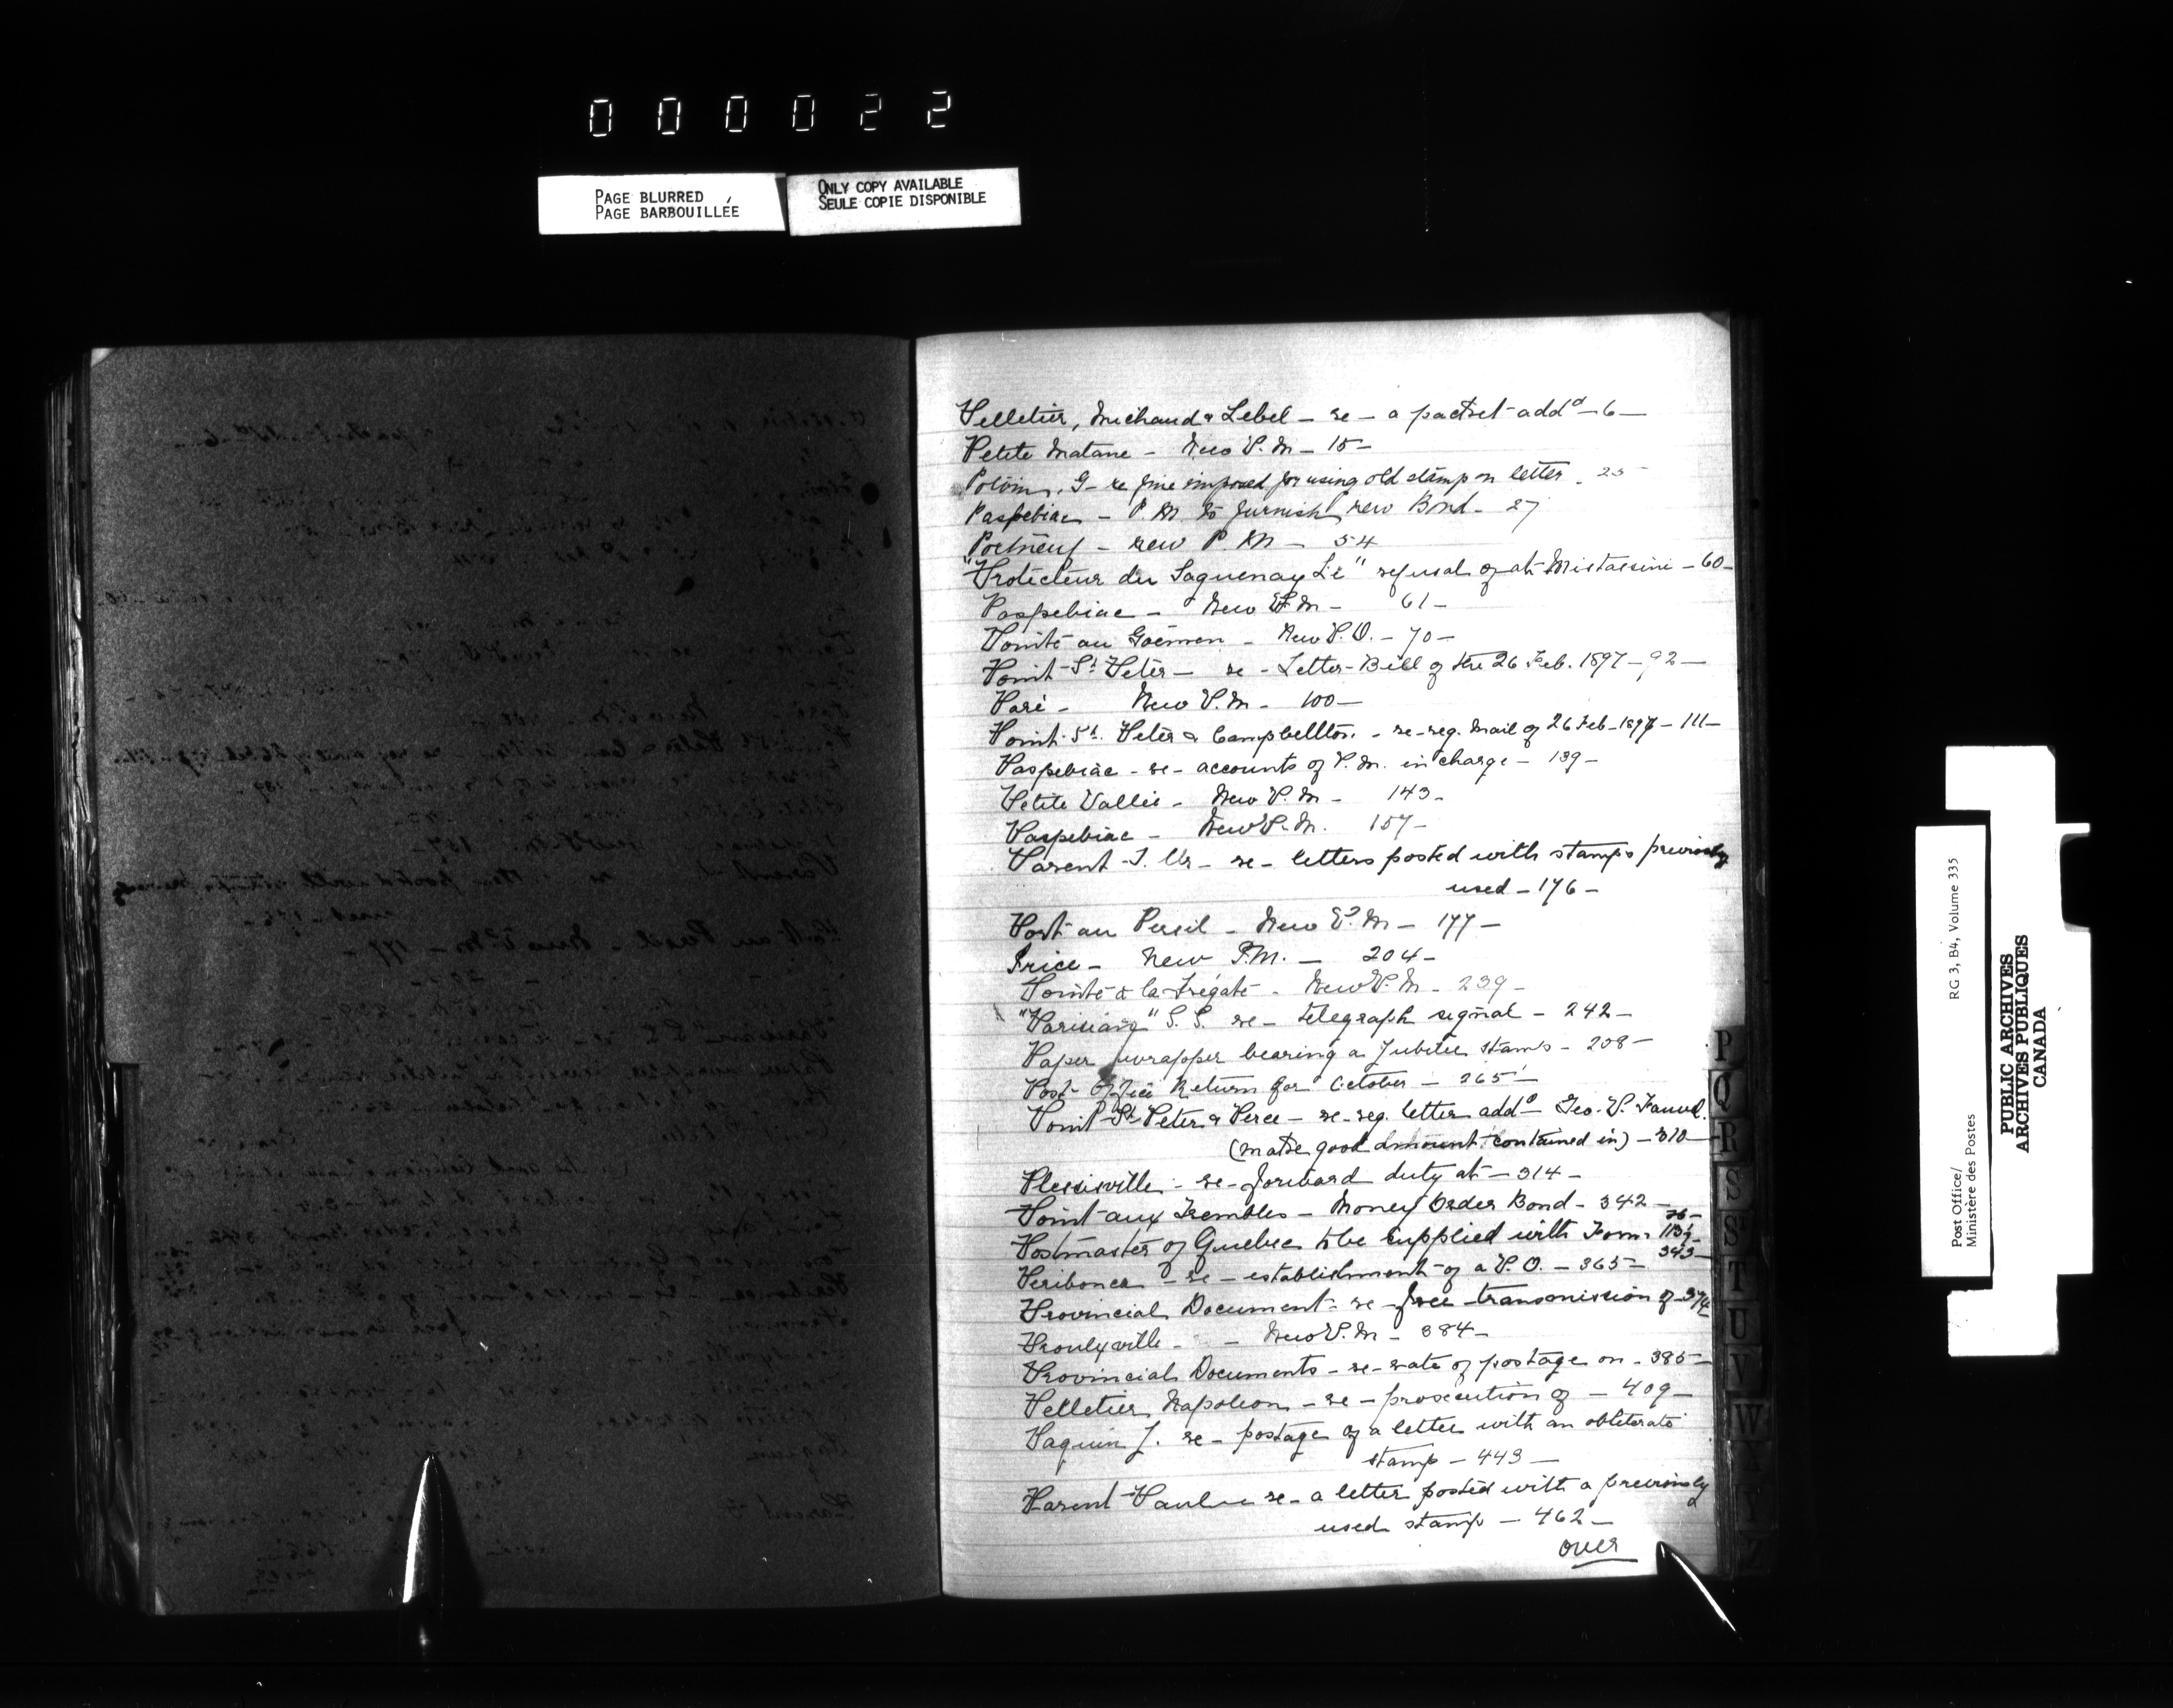 000022
PAGE BLURRED
PAGE BARBOUILLÉE
ONLY COPY AVAILABLE
SEULE COPIE DISPONIBLE
Pelletier, Michaud & Lebel - re - a packet add^d - 6 -
Petite Matane - New P.M - 15 -
Potvin, G - re fine imposed for using old stamp on letter - 25 -
Paspebiac - P.M. to furnish new Bond - 27
Portneuf - new P.M - 54
"Protecteur du Saguenay Le" refusal of at Mistassini - 60 -
Paspebiac - New P.M - 61 -
Pointe au Goémon - New P.O. - 70 -
Point St Peter - re - Letter-Bill of the 26 Feb. 1897 - 92 -
Paré - New P.M. - 100 -
Point St. Peter & Campbellton - re-reg. Mail of 26 Feb - 1897 - 111 -
Paspebiac - re - accounts of P.M. in charge - 139 -
Petite Vallée - New P.M - 143 -
Paspebiac - New P.M. 157 -
Parent - re - letters posted with stamps previously
used - 176 -
Port au Persil - New P.M - 177 -
Price - New P.M. - 204 -
Pointe à la Frégate - New P.M - 239 -
"Parisian" S.S. re - telegraph signal - 242 -
Paper wrapper bearing a Jubilee stamp - 258 -
Post Office Return for October - 265 -
Point St Peter & Perce - re-reg. letter add^d Geo. P. Fauvel.
(make good amount contained in) - 310 -
Plessisville - re - forward duty at - 314 -
Point aux Trembles - Money Order Bond - 342 -
Postmaster of Quebec to be supplied with Form 113½ - 343 -
Peribonca - re - establishment of a P.O. - 365 -
Provincial Document - re - free transmission of - 374
Proulxville - New P.M - 384 -
Provincial Documents - re - rate of postage on - 385 -
Pelletier Napoleon - re - prosecution of - 409 -
Paquin J. re - postage of a letter with an obliterate
stamp - 443 -
Parent re - a letter posted with a previously
used stamp - 462 -
over
P
Q
R
S
St
T
U
V
W
X
Y
Z
Post Office/
Ministère des Postes
RG 3, B4, Volume 335
PUBLIC ARCHIVES
ARCHIVES PUBLIQUES
CANADA